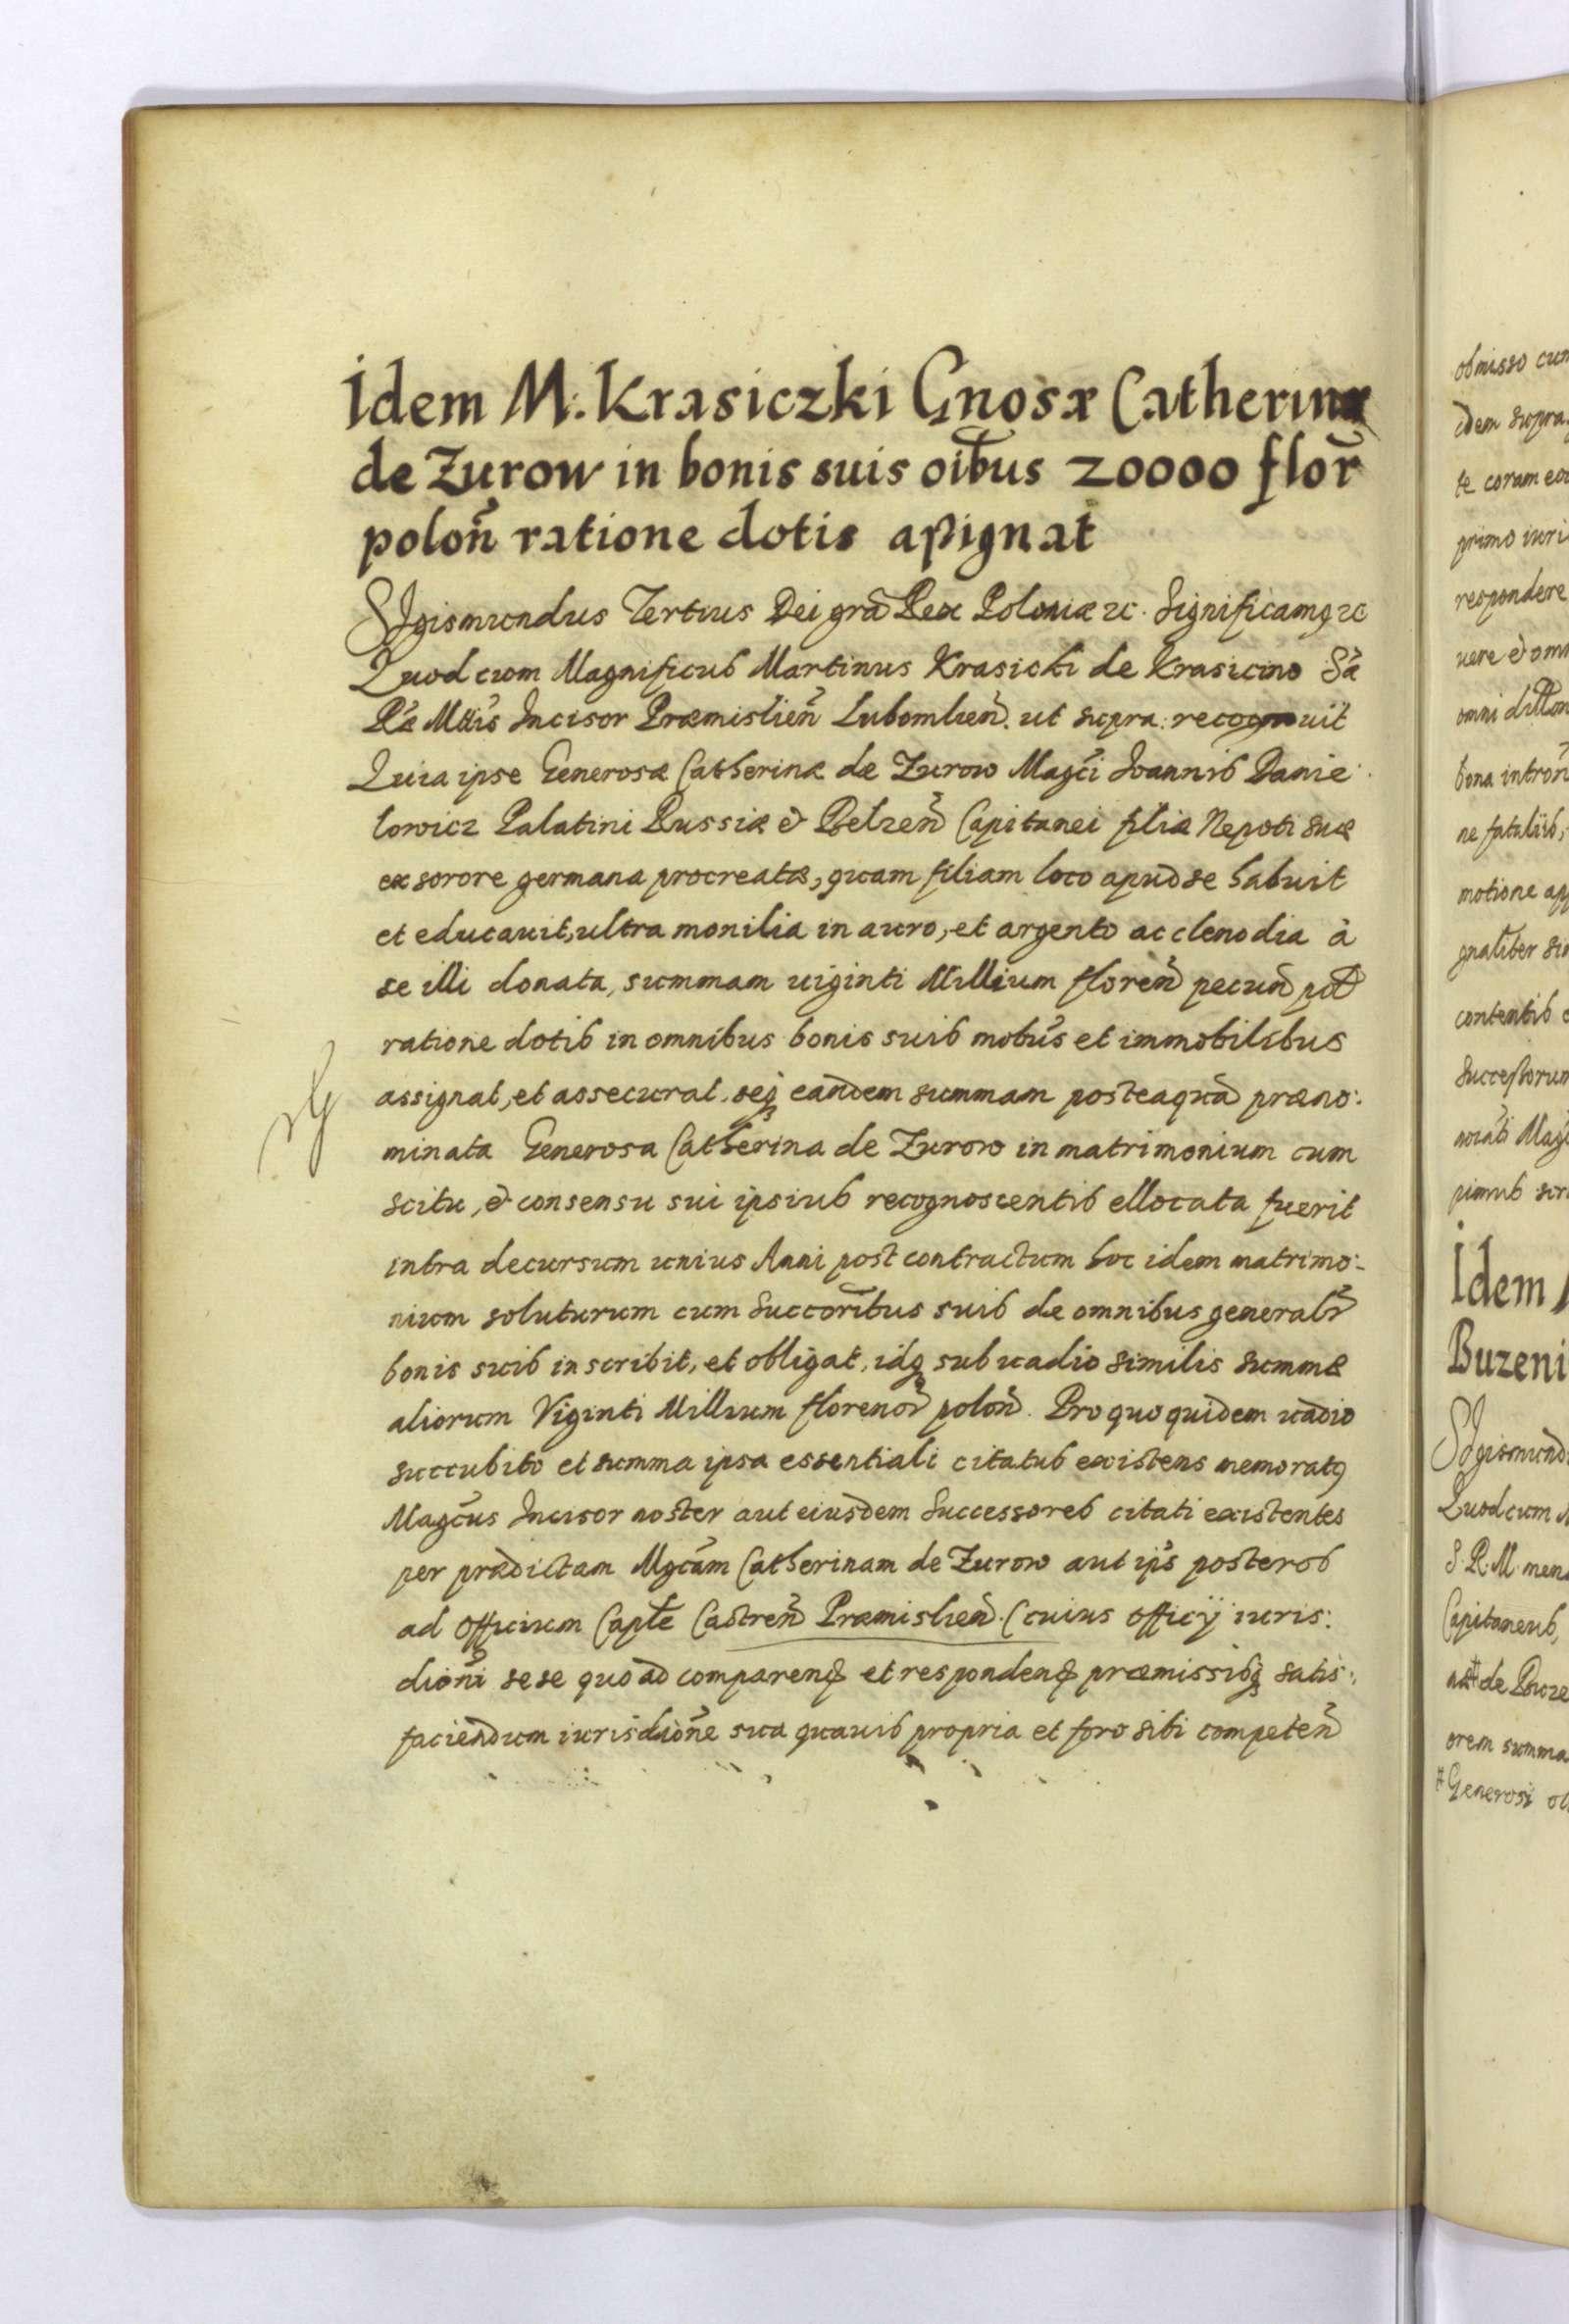 Idem M. Krasiczki Gnosæ Catherinæ
de Zurow in bonis suis oibus 20000 flor
polon ratione dotis assignat
Sigismundus Tertius Dei gra Rex Poloniæ zc. Significamq zc
Quod cum Magnificus Martinus Krasicki de Krasicino Sæ
Ræ Mttis Incisor Præmislien Lubomlien. ut supra: recognouit
Quia ipse Generosæ Catherinæ de Zurow Magci Joannis Danie:
lowicz Palatini Russiæ & Belzen Capitanei filiæ Nepoti suæ
ex sorore germana procreatæ, quam filiam loco apud se habuit
et educauit, ultra monilia in auro, et argento ac clenodia à
se illi donata, summam uiginti Millium floren pecun pol
ratione dotis in omnibus bonis suis mobus et immobilibus
assignat, et assecurat, seq eandem summam posteaqua præno:
minata Generosa Catherina de Zurow in matrimonium cum
scitu, & consensu sui ipsius recognoscentis ellocata fuerit
intra decursum unius Anni post contractum hoc idem matrimo:
nium soluturum cum Succoribus suis de omnibus generalr
bonis suis inscribit, et obligat, idq sub uadio similis summæ
aliorum Viginti Millium florenor polon. Pro quo quidem uadio
succubito et summa ipsa essentiali citatus existens memoratq
Magcus Incisor noster aut eiusdem Successores citati existentes
per prædictam Mgcam Catherinam de Zurow aut ips posteros
ad Officium Capte Castren Præmislien. (cuius officÿ iuris:
dioni sese quo ad comparend et respondend præmissisq satis:
faciendum iurisdione sua quauis propria et foro sibi competen
obmisso cum
idem supra
te coram eod
primo iuri
respondere
uere & omn
omni
bona intron
ne fatalijs,
motione app
gnaliter
contentis
Successorum
Idem
Buzeni
Sigismund
Quod cum
S. R. M.
Capitaneus,
de Buze
orem summa
Generosi